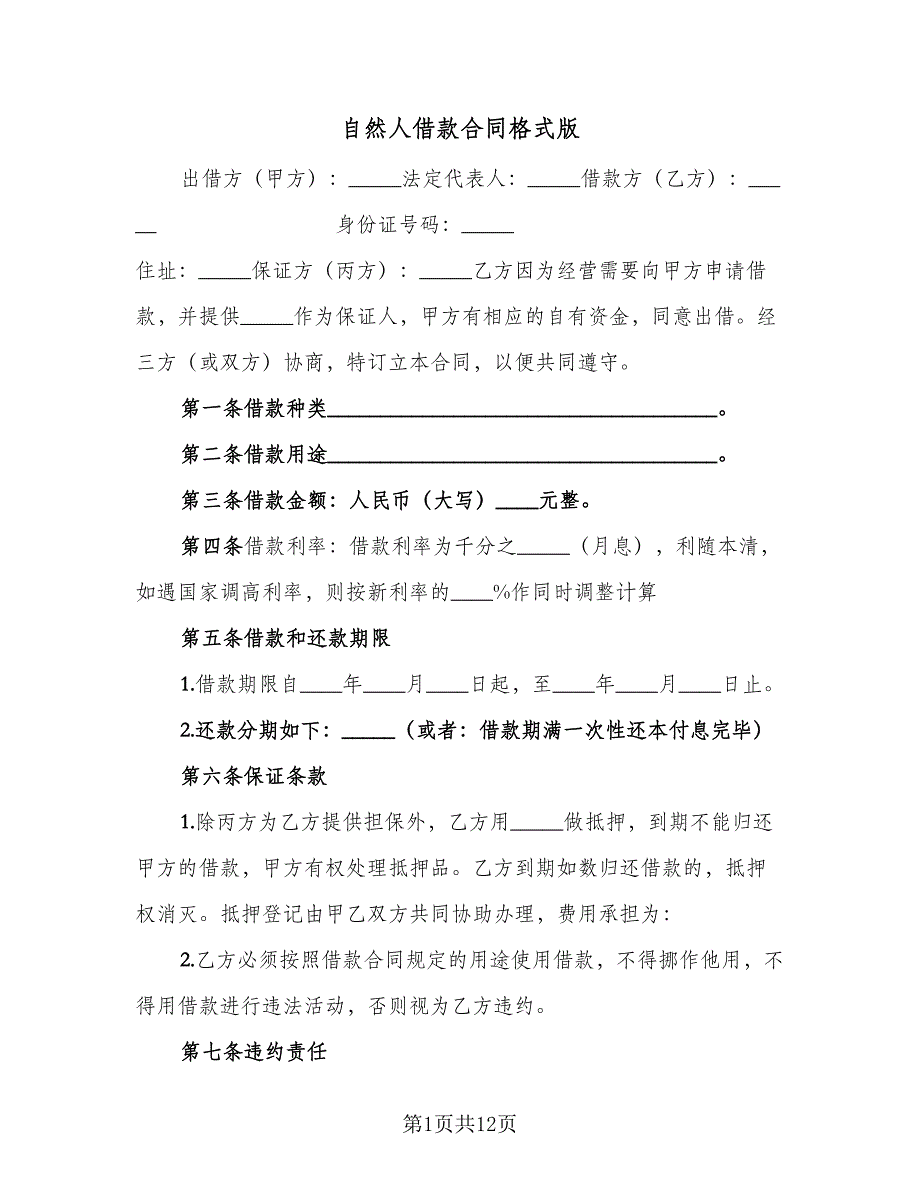 自然人借款合同格式版
出借方（甲方）：_____法定代表人：_____借款方（乙方）：___
__ 身份证号码：_____
住址：_____保证方（丙方）：_____乙方因为经营需要向甲方申请借
款，并提供_____作为保证人，甲方有相应的自有资金，同意出借。经
三方（或双方）协商，特订立本合同，以便共同遵守。
第一条借款种类_____________________________________。
第二条借款用途_____________________________________。
第三条借款金额：人民币（大写）____元整。
第四条借款利率：借款利率为千分之_____（月息），利随本清，
如遇国家调高利率，则按新利率的____%作同时调整计算
第五条借款和还款期限
1.借款期限自____年____月____日起，至____年____月____日止。
2.还款分期如下：_____（或者：借款期满一次性还本付息完毕）
第六条保证条款
1.除丙方为乙方提供担保外，乙方用_____做抵押，到期不能归还
甲方的借款，甲方有权处理抵押品。乙方到期如数归还借款的，抵押
权消灭。抵押登记由甲乙双方共同协助办理，费用承担为：
2.乙方必须按照借款合同规定的用途使用借款，不得挪作他用，不
得用借款进行违法活动，否则视为乙方违约。
第七条违约责任
第1页共12页